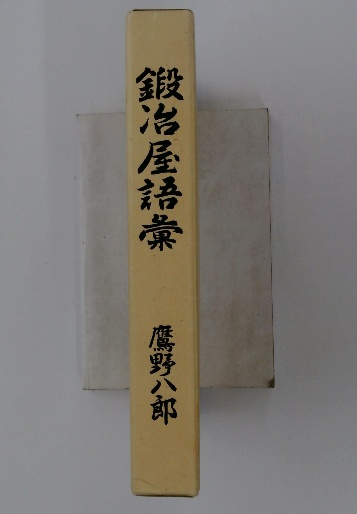 鍛冶屋語彙
鷹野八郎